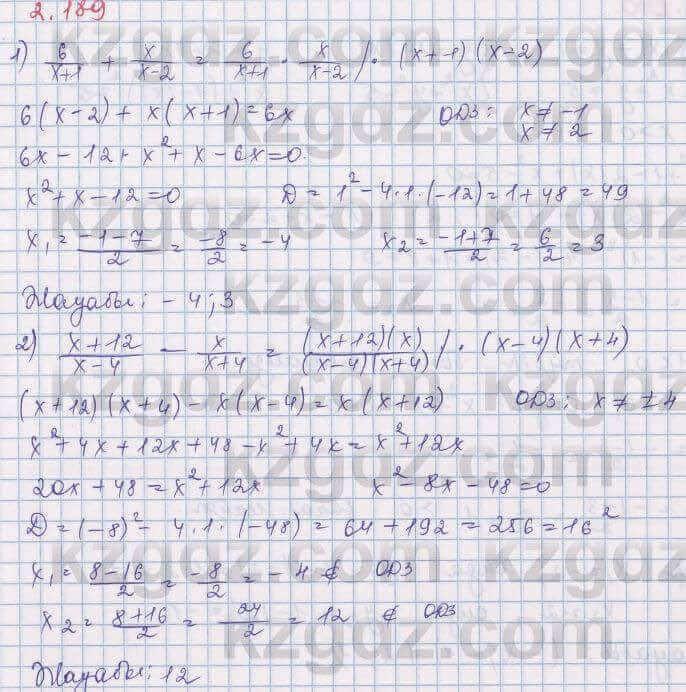 2.189
1) 6/(x+1) + x/(x-2) = 6/(x+1) · x/(x-2) / · (x+1)(x-2)
6(x-2) + x(x+1) = 6x ОДЗ: x ≠ -1
x ≠ 2
6x - 12 + x² + x - 6x = 0.
x² + x - 12 = 0 D = 1² - 4·1·(-12) = 1 + 48 = 49
x₁ = (-1-7)/2 = -8/2 = -4 x₂ = (-1+7)/2 = 6/2 = 3
Жауабы: -4; 3
2) (x+12)/(x-4) - x/(x+4) = (x+12)(x)/(x-4)(x+4) / · (x-4)(x+4)
(x+12)(x+4) - x(x-4) = x(x+12) ОДЗ: x ≠ ±4
x² + 4x + 12x + 48 - x² + 4x = x² + 12x
20x + 48 = x² + 12x x² - 8x - 48 = 0
D = (-8)² - 4·1·(-48) = 64 + 192 = 256 = 16²
x₁ = (8-16)/2 = -8/2 = -4 ∉ ОДЗ
x₂ = (8+16)/2 = 24/2 = 12 ∉ ОДЗ
Жауабы: 12
kzgdz.com